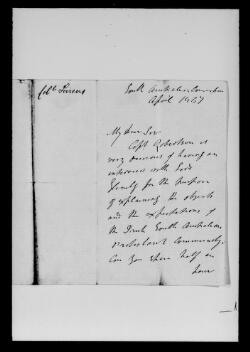 Coll. Torrens
South Australian Commission
April 1837
My dear Sir
Capt. Robertson is
very anxious of having an
interview with Lord
Glenelg for the purpose
of explaining the objects
and the expectations of
the South Australian
Community.
Can you spare half an
hour